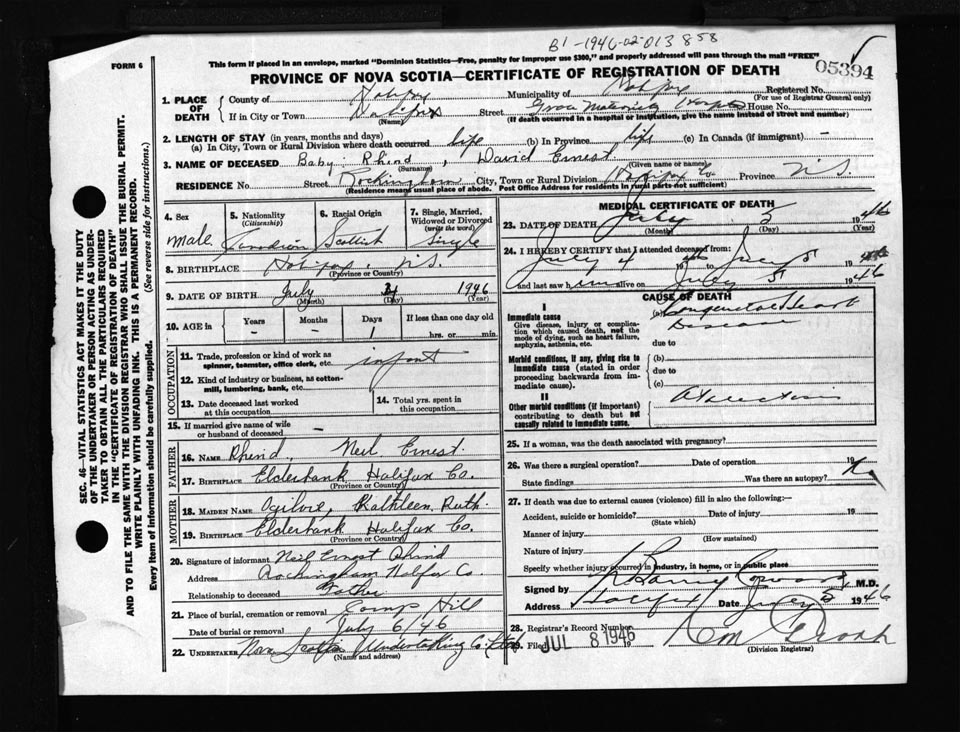 B1-1946-02-013858
This form if placed in an envelope, marked "Dominion Statistics—Free, penalty for improper use $300," and properly addressed will pass through the mail "FREE"
FORM 6
05394
PROVINCE OF NOVA SCOTIA—CERTIFICATE OF REGISTRATION OF DEATH
1. PLACE OF DEATH
County of Halifax Municipality of Halifax Registered No.
(For use of Registrar General only)
If in City or Town Halifax Street Grace Maternity Hospital House No.
(Name) (If death occurred in a hospital or institution, give the name instead of street and number)
2. LENGTH OF STAY (in years, months and days)
(a) In City, Town or Rural Division where death occurred life (b) In Province life (c) In Canada (if immigrant) —
3. NAME OF DECEASED Baby Rhind, David Ernest
(Surname) (Given name or names)
RESIDENCE No. Street Rockingham City, Town or Rural Division Halifax Co Province N.S.
(Residence means usual place of abode. Post Office Address for residents in rural parts not sufficient)
4. Sex
Male
5. Nationality (Citizenship)
Canadian
6. Racial Origin
Scottish
7. Single, Married, Widowed or Divorced (write the word)
Single
8. BIRTHPLACE Halifax, N.S.
(Province or Country)
9. DATE OF BIRTH July 4 1946
(Month) (Day) (Year)
10. AGE in
Years Months Days If less than one day
— — 1 hrs. or min.
OCCUPATION
11. Trade, profession or kind of work as spinner, teamster, office clerk, etc. infant
12. Kind of industry or business, as cotton-mill, lumbering, bank, etc.
13. Date deceased last worked at this occupation
14. Total yrs. spent in this occupation
15. If married give name of wife or husband of deceased —
FATHER
16. NAME Rhind, Neil Ernest.
17. BIRTHPLACE Elderbank Halifax Co.
(Province or Country)
MOTHER
18. MAIDEN NAME Ogilvie, Kathleen Ruth.
19. BIRTHPLACE Elderbank Halifax Co.
(Province or Country)
20. Signature of informant Neil Ernest Rhind
Address Rockingham Halifax Co
Relationship to deceased Father
21. Place of burial, cremation or removal Camp Hill
Date of burial or removal July 6/46
22. UNDERTAKER Nova Scotia Undertaking Co Ltd
(Name and address)
MEDICAL CERTIFICATE OF DEATH
23. DATE OF DEATH July 5 1946
(Month) (Day) (Year)
24. I HEREBY CERTIFY that I attended deceased from:
July 4 1946 to July 5 1946
and last saw him alive on July 5 1946
CAUSE OF DEATH
I
Immediate cause
Give disease, injury or complication which caused death, not the mode of dying, such as heart failure, asphyxia, asthenia, etc.
(a) Congenital Heart Disease
due to
Morbid conditions, if any, giving rise to immediate cause (stated in order proceeding backwards from immediate cause).
(b)
due to
(c)
II
Other morbid conditions (if important) contributing to death but not causally related to immediate cause.
Atelectasis
25. If a woman, was the death associated with pregnancy?
26. Was there a surgical operation? Date of operation 19
State findings Was there an autopsy? No
27. If death was due to external causes (violence) fill in also the following:—
Accident, suicide or homicide? Date of injury 19
(State which)
Manner of injury
(How sustained)
Nature of injury
Specify whether injury occurred in industry, in home, or in public place
Signed by M.D.
Address Halifax Date July 5 1946
28. Registrar's Record Number
29. Filed JUL 8 1946 19
(Division Registrar)
SEC. 46—VITAL STATISTICS ACT MAKES IT THE DUTY
OF THE UNDERTAKER OR PERSON ACTING AS UNDER-
TAKER TO OBTAIN ALL THE PARTICULARS REQUIRED
IN THE "CERTIFICATE OF REGISTRATION OF DEATH"
AND TO FILE THE SAME WITH THE DIVISION REGISTRAR WHO SHALL ISSUE THE BURIAL PERMIT.
WRITE PLAINLY WITH UNFADING INK. THIS IS A PERMANENT RECORD.
Every item of information should be carefully supplied. (See reverse side for instructions.)